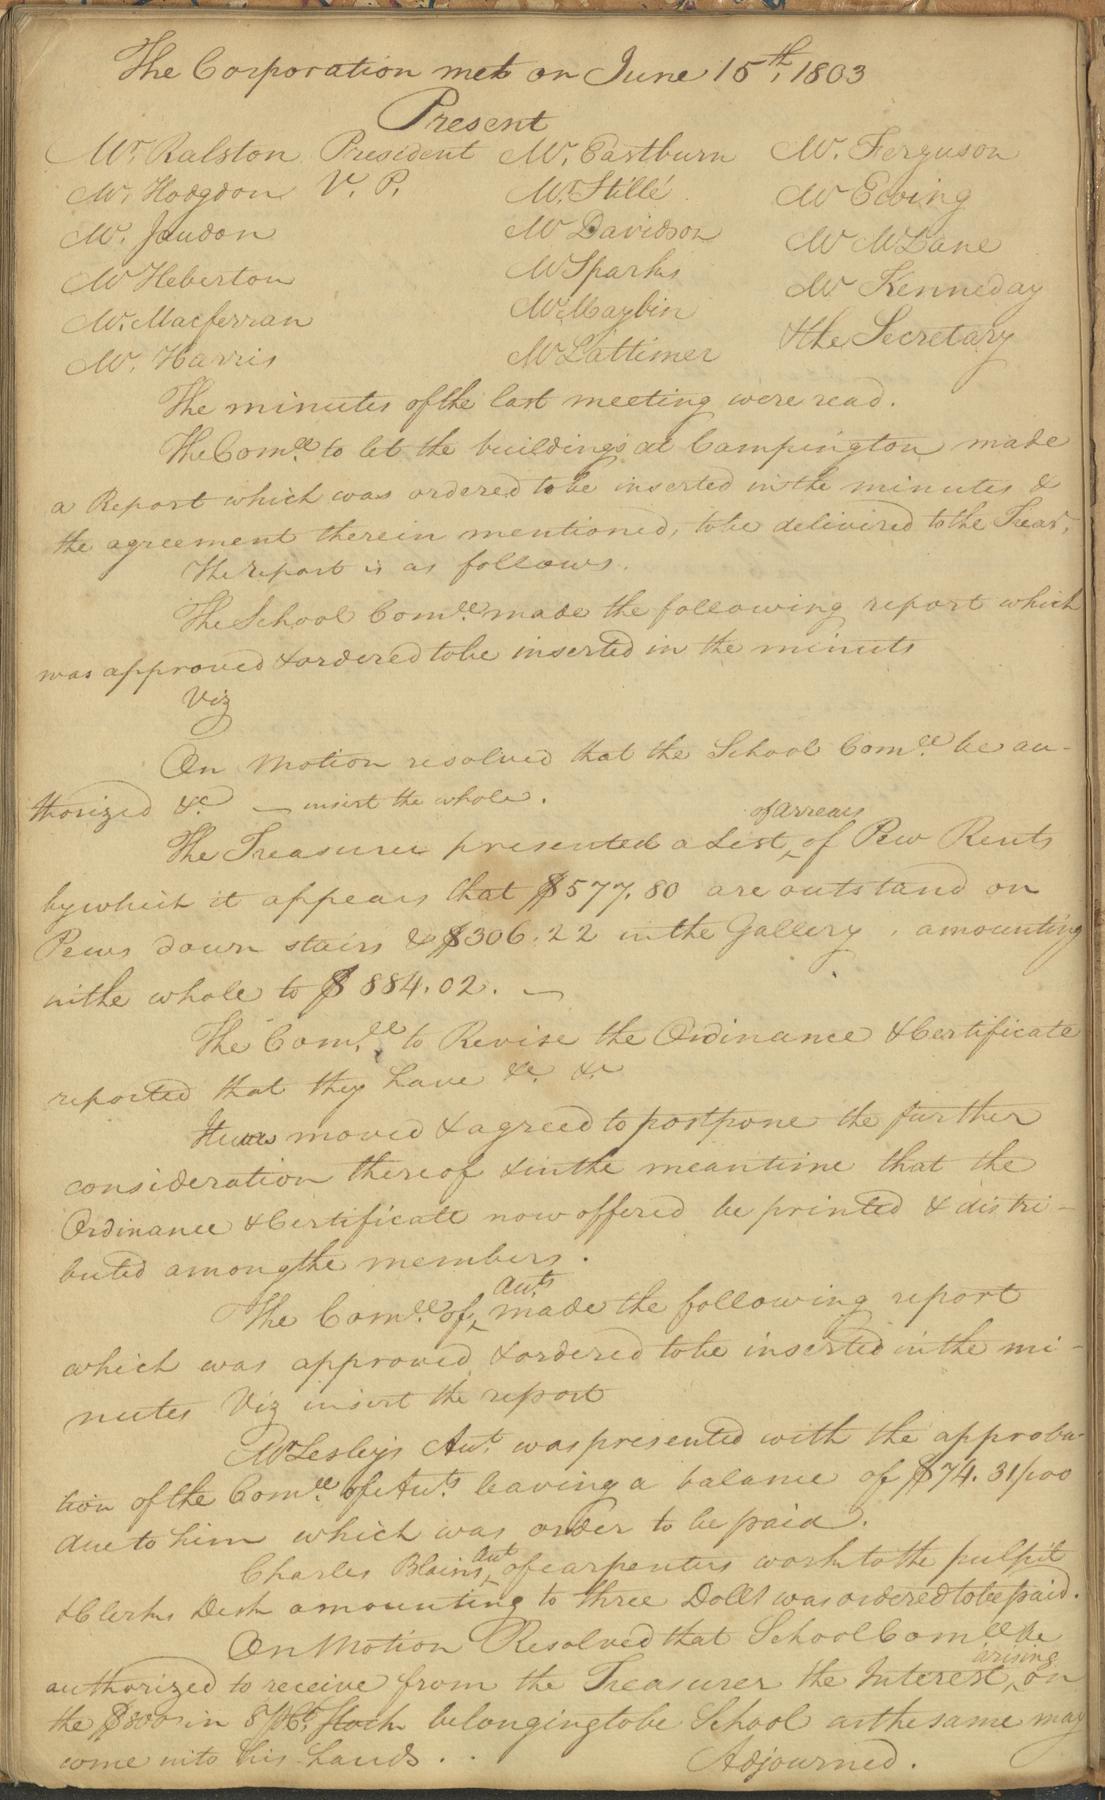 The Corporation met on June 15th, 1803
Present
Mr. Ralston President
Mr. Hodgdon V. P.
Mr. Jaudon
Mr Heberton
Mr. Macferran
Mr. Harris
Mr. Eastburn
Mr. Stillé
Mr Davidson
Mr Sparks
Mr. Maybin
Mr Lattimer
Mr. Ferguson
Mr Ewing
Mr McLane
Mr Kenneday
& the Secretary
The minutes of the last meeting were read.
The Comee. to let the buildings at Campington made
a Report which was ordered to be inserted in the minutes &
the agreement therein mentioned, to be delivired to the Trear.
The report is as follows.
The School Comee. made the following report which
was approved & ordered to be inserted in the minuts
Viz
On Motion resolved that the School Comee. be au-
thorized &c — insert the whole.
The Treasurer presented a List ^of arrears of Pew Rents
by which it appears that $577.80 are outstand on
Pews down stairs & $306.22 in the Gallery, amounting
in the whole to $884.02. —
The Comee. to Revise the Ordinance & Certificate
reported that they have &c. &c
It was moved & agreed to postpone the further
consideration thereof & in the meantime that the
Ordinance & Certificate now offered be printed & distri-
buted among the members.
The Comee. of ^Auts made the following report
which was approved & ordered to be inserted in the mi-
nutes Viz insert the report
Mr Lesley's Aut. was presented with the approba-
tion of the Comee. of Auts. leaving a balance of $74.31/100
due to him which was order to be paid.
Charles Blains ^aut of carpenters work to the pulpit
& Clerks Desk amounting to three Dolls was ordered to be paid.
On Motion Resolved that School Comee be
authorized to receive from the Treasurer the Interest ^arising on
the $800 in 8 Stock belonging to be School as the same may
come into his hands . .
Adjourned.